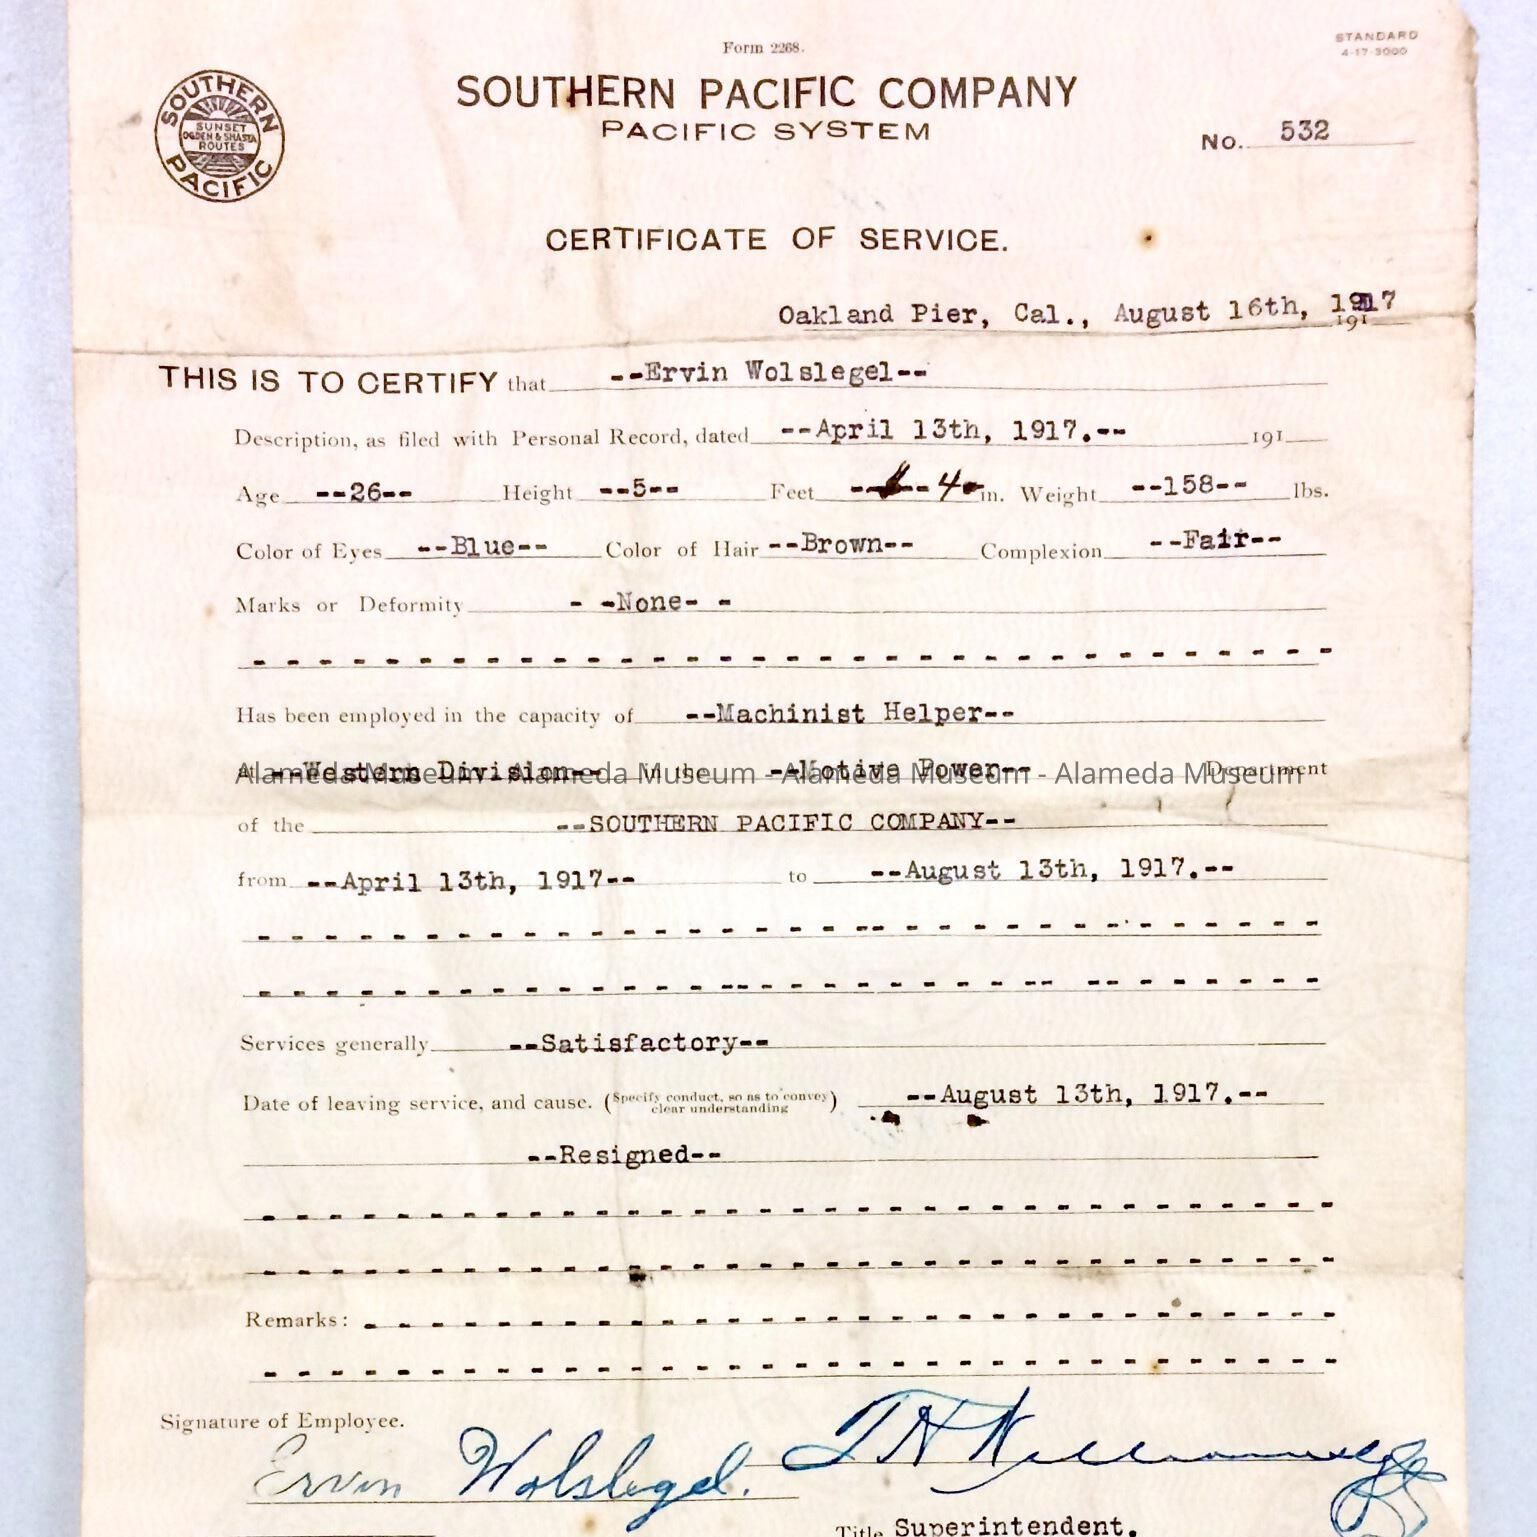 Form 2268.
STANDARD
4-17-3000
SOUTHERN PACIFIC COMPANY
PACIFIC SYSTEM
SOUTHERN PACIFIC
SUNSET
OGDEN & SHASTA
ROUTES
No. 532
CERTIFICATE OF SERVICE.
Oakland Pier, Cal., August 16th, 1917
191
THIS IS TO CERTIFY that --Ervin Wolslegel--
Description, as filed with Personal Record, dated --April 13th, 1917.-- 191
Age --26-- Height --5-- Feet -- -- 4 in. Weight --158-- lbs.
Color of Eyes --Blue-- Color of Hair --Brown-- Complexion --Fair--
Marks or Deformity - -None- -
Has been employed in the capacity of --Machinist Helper--
at --Western Division-- in the --Motive Power-- Department
Alameda Museum - Alameda Museum - Alameda Museum - Alameda Museum
of the --SOUTHERN PACIFIC COMPANY--
from --April 13th, 1917-- to --August 13th, 1917.--
Services generally --Satisfactory--
Date of leaving service, and cause. (Specify conduct, so as to convey clear understanding) --August 13th, 1917.--
--Resigned--
Remarks:
Signature of Employee.
Ervin Wolslegel.
Title Superintendent.